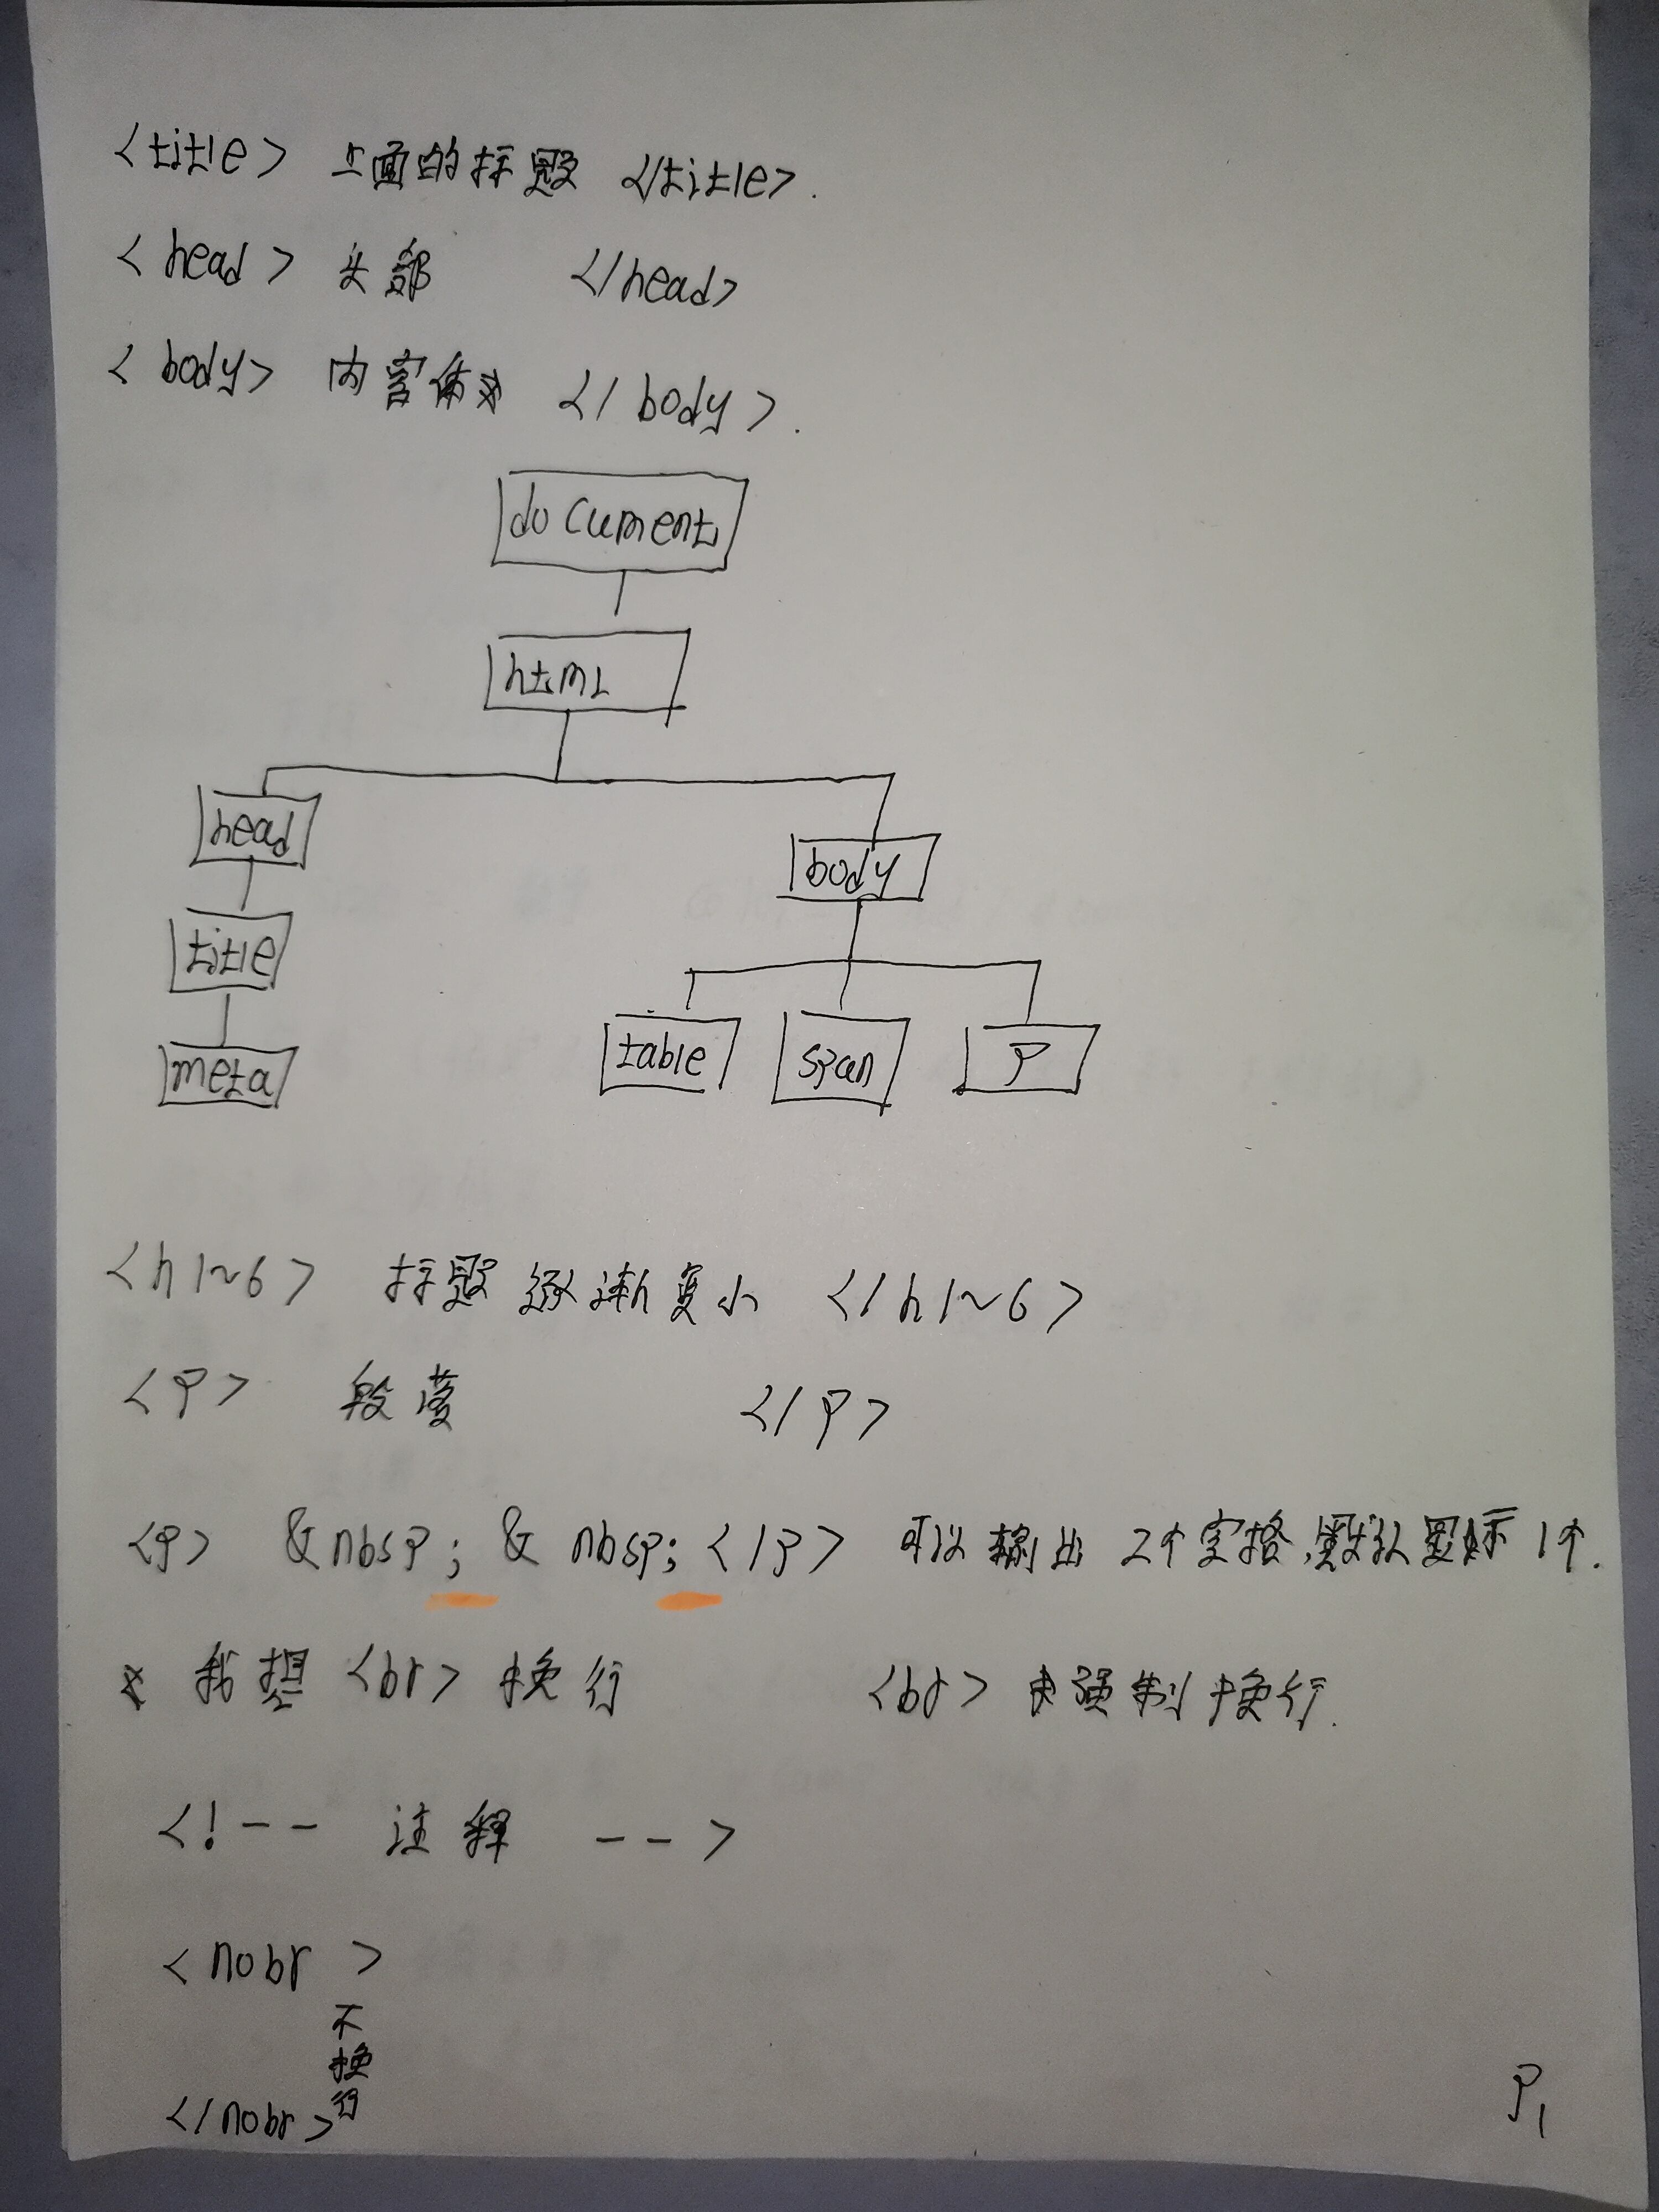 <title> 上面的标题 </title>.
<head> 头部 </head>
<body> 内容体 </body>.
document
html
head
body
title
meta
table span P
<h1~6> 标题逐渐变小 </h1~6>
<P> 段落 </P>
<P> &nbsp; &nbsp; </P> 可以输出 2个空格,默认显示 1个.
* 我想 <br> 换行 <br> 强制换行.
<!-- 注释 -->
<nobr>
不
换
行
</nobr>
P1